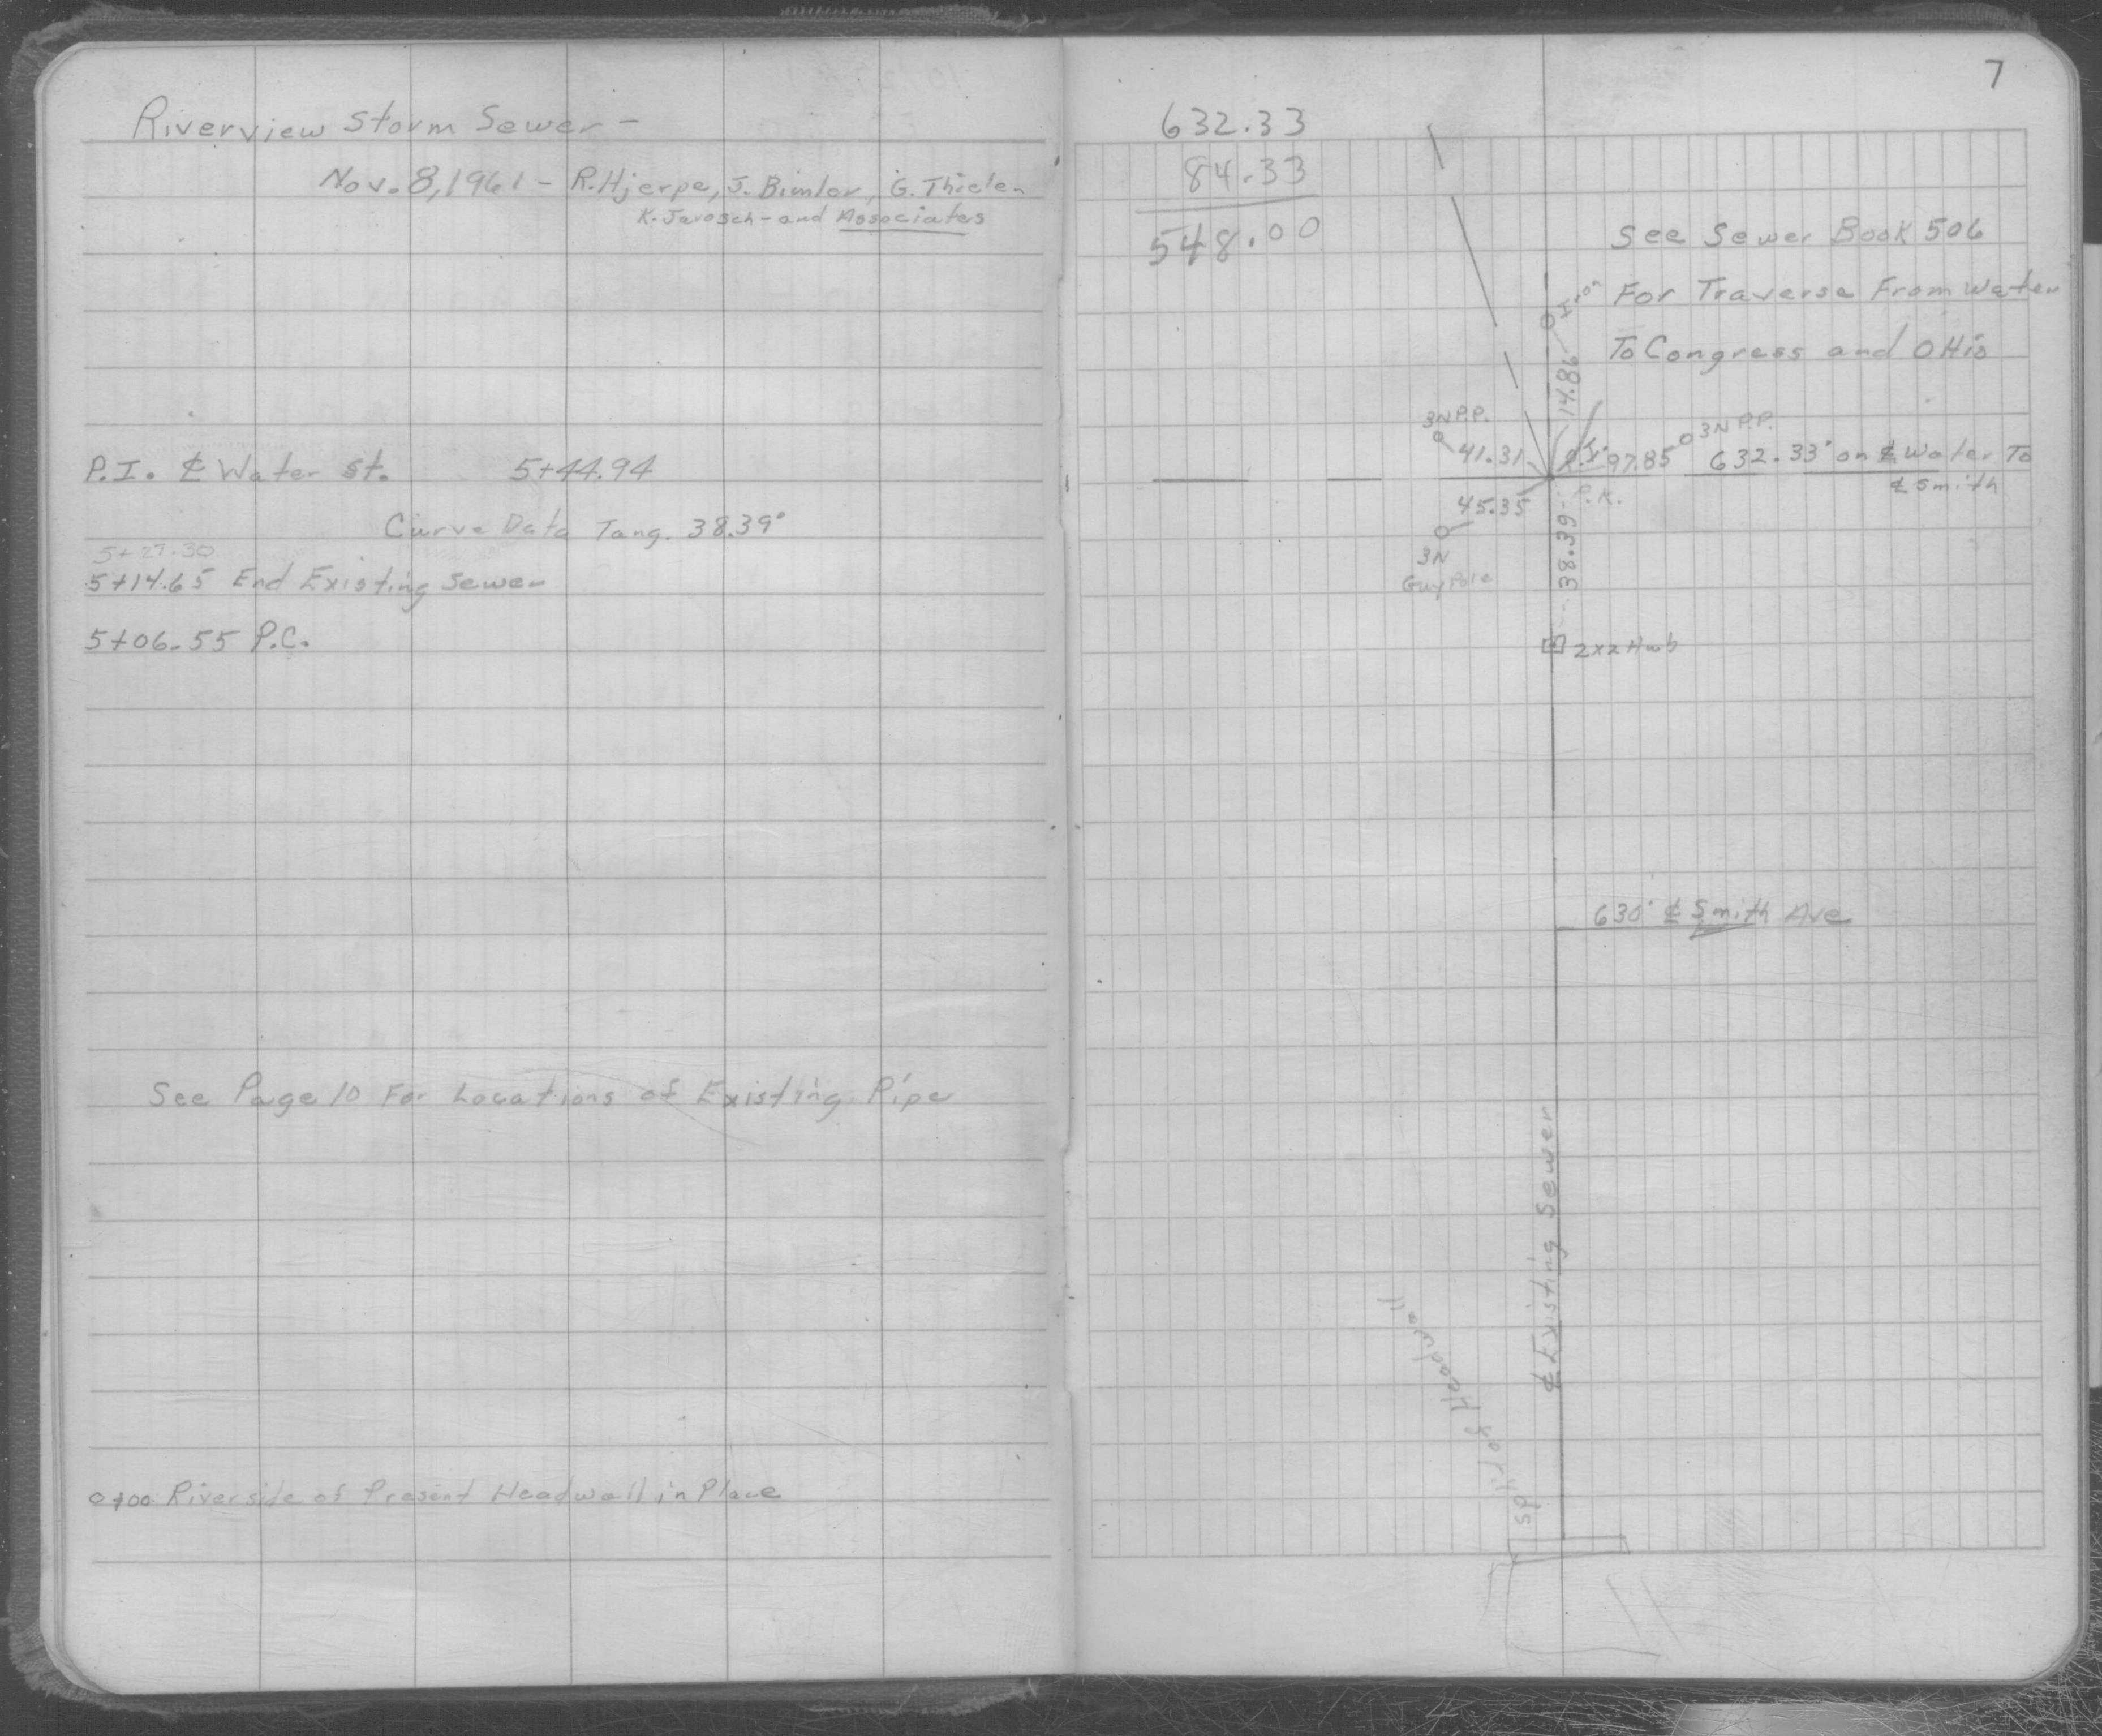 Riverview Storm Sewer -
Nov. 8, 1961 - R. Hjerpe, J. Bimler, G. Thielen
K. Jarosch - and Associates
P.I. ℄ Water St. 5+44.94
Curve Data Tang. 38.39'
5+27.30
5+14.65 End Existing Sewer
5+06.55 P.C.
See Page 10 For Locations of Existing Pipe
0+00 Riverside of Present Headwall in Place
7
632.33
84.33
548.00
See Sewer Book 506
For Traverse From Water
To Congress and OHio
Iron
14.86
3N P.P.
41.31
P.I.
97.85
3N P.P.
632.33' on ℄ Water To
℄ Smith
45.35
P.K.
3N
Guy Pole
38.39
2x2 Hub
630' ℄ Smith Ave
℄ Existing Sewer
Headwall